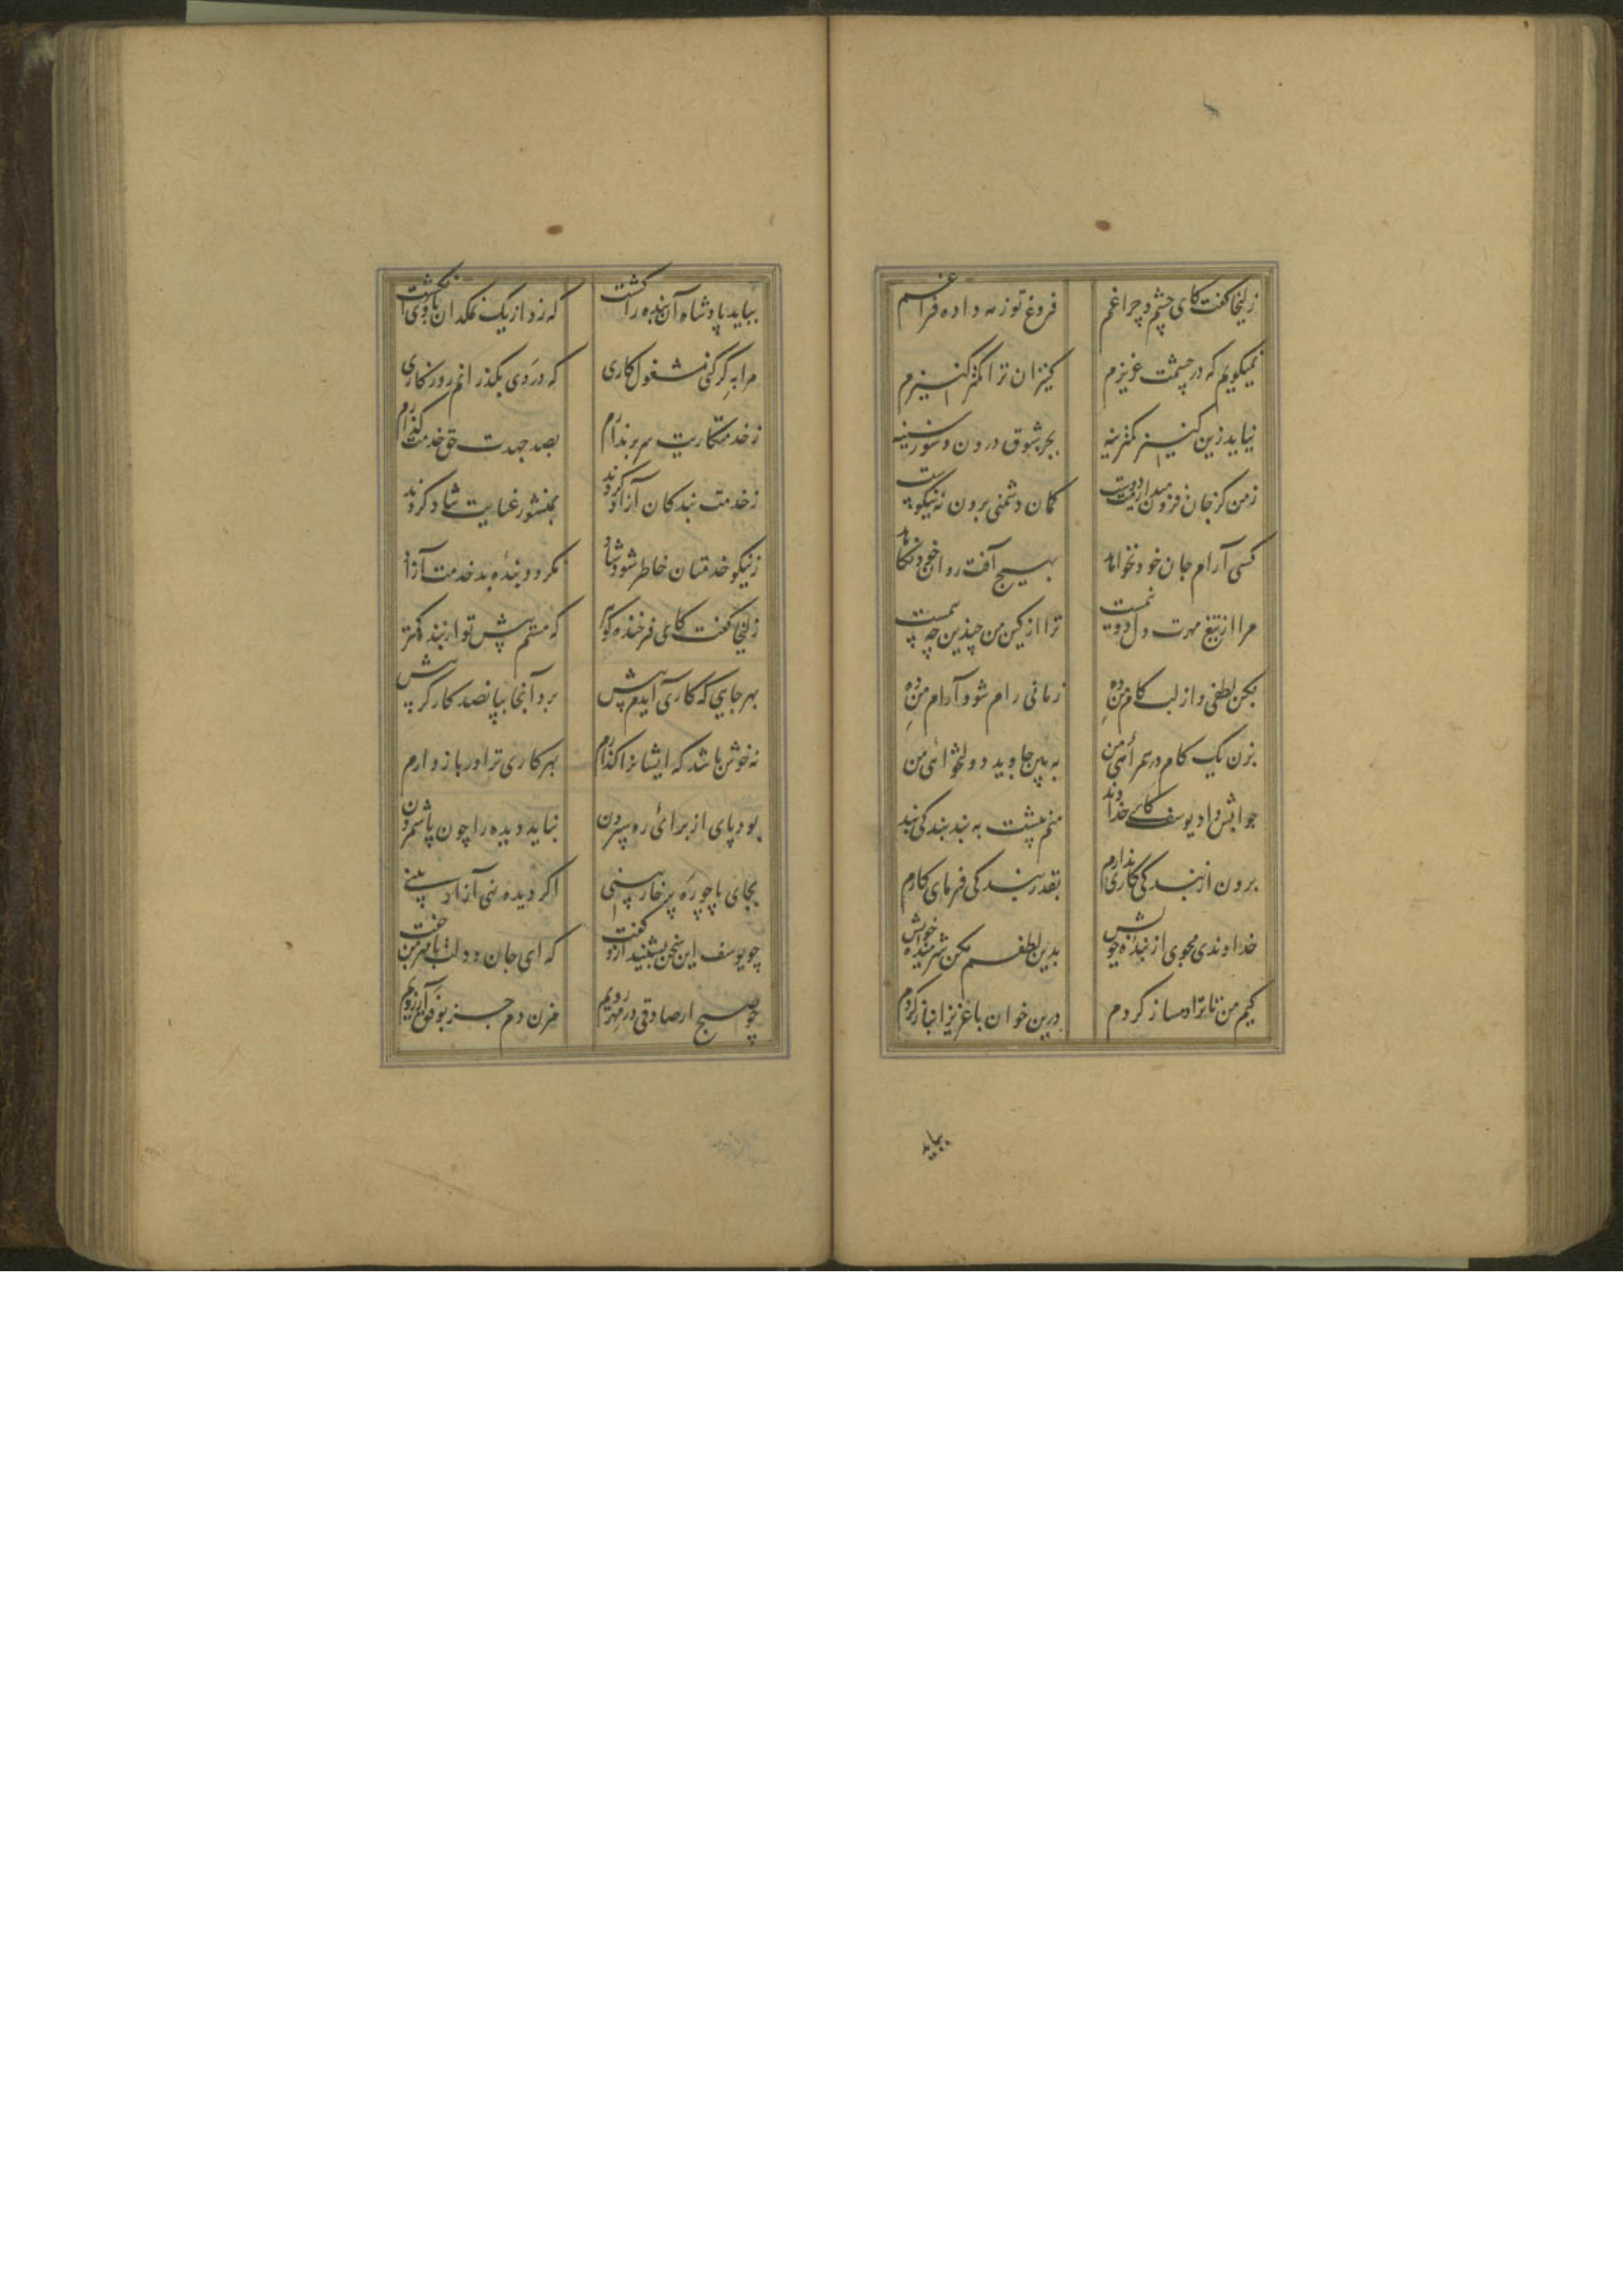 زلیخا گفت کای چشم و چراغم فروغ تو زمه داده فراغم
نمیگویم که در چشمت عزیزم کنیزان ترا کمتر کنیزم
نیاید زین کنیز کمترینه بجز شوق درون و سوز سینه
زمن کز جان فزون میدارمت دوست گمان دشمنی بردن نه نیکوست
کسی آرام جان خود نخواهد بهیچ آفت روان خود نکاهد
مرا از تیغ مهرت دل دو نیمست ترا از کین من چندین چه بیمست
بکن لطفی و از لب کام من ده زمانی رام شو و آرام من ده
بزن یک گام در همراهی من به بین جاوید دولتخواهی من
جوابش داد یوسف کای خداوند منم پیشت به بند بندگی بند
برون از بندگی کاری ندارم بقدر بندگی فرمای کارم
خداوندی مجوی از بنده خویش بدین لطفم مکن شرمنده خویش
کیم من تا ترا دمساز گردم درین خوان با عزیز انباز گردم
بباید
بباید پادشاه آن بنده را کشت که زد از یک نمکدان با وی انگشت
مرا به گر کنی مشغول کاری که در وی بگذرانم روزگاری
زخدمتکاریت سر برندارم بصد جهدت حق خدمت گذارم
زخدمت بندگان آزاد گردند بمنشور عنایت شاد گردند
زنیکو خدمتان خاطر شود شاد نگردد بنده بد خدمت آزاد
زلیخا گفت کای فرخنده گوهر که هستم پیش تو از بنده کمتر
بهر جایی که کاری آیدم پیش بود آنجا بپا نصد کارگر بیش
نه خوش باشد که ایشانرا گذارم بهر کاری ترا در باز دارم
بود پای از برای ره سپردن نباید دیده را چون پا شمردن
بجای پا چو ره پر خار بینی اگر دیده نهی آزار بینی
چو یوسف این سخن بشنید ازو گفت که ای جان و دلت با مهر من جفت
چو صبح ار صادقی در مهر رویم مزن دم جز بوفق آرزویم